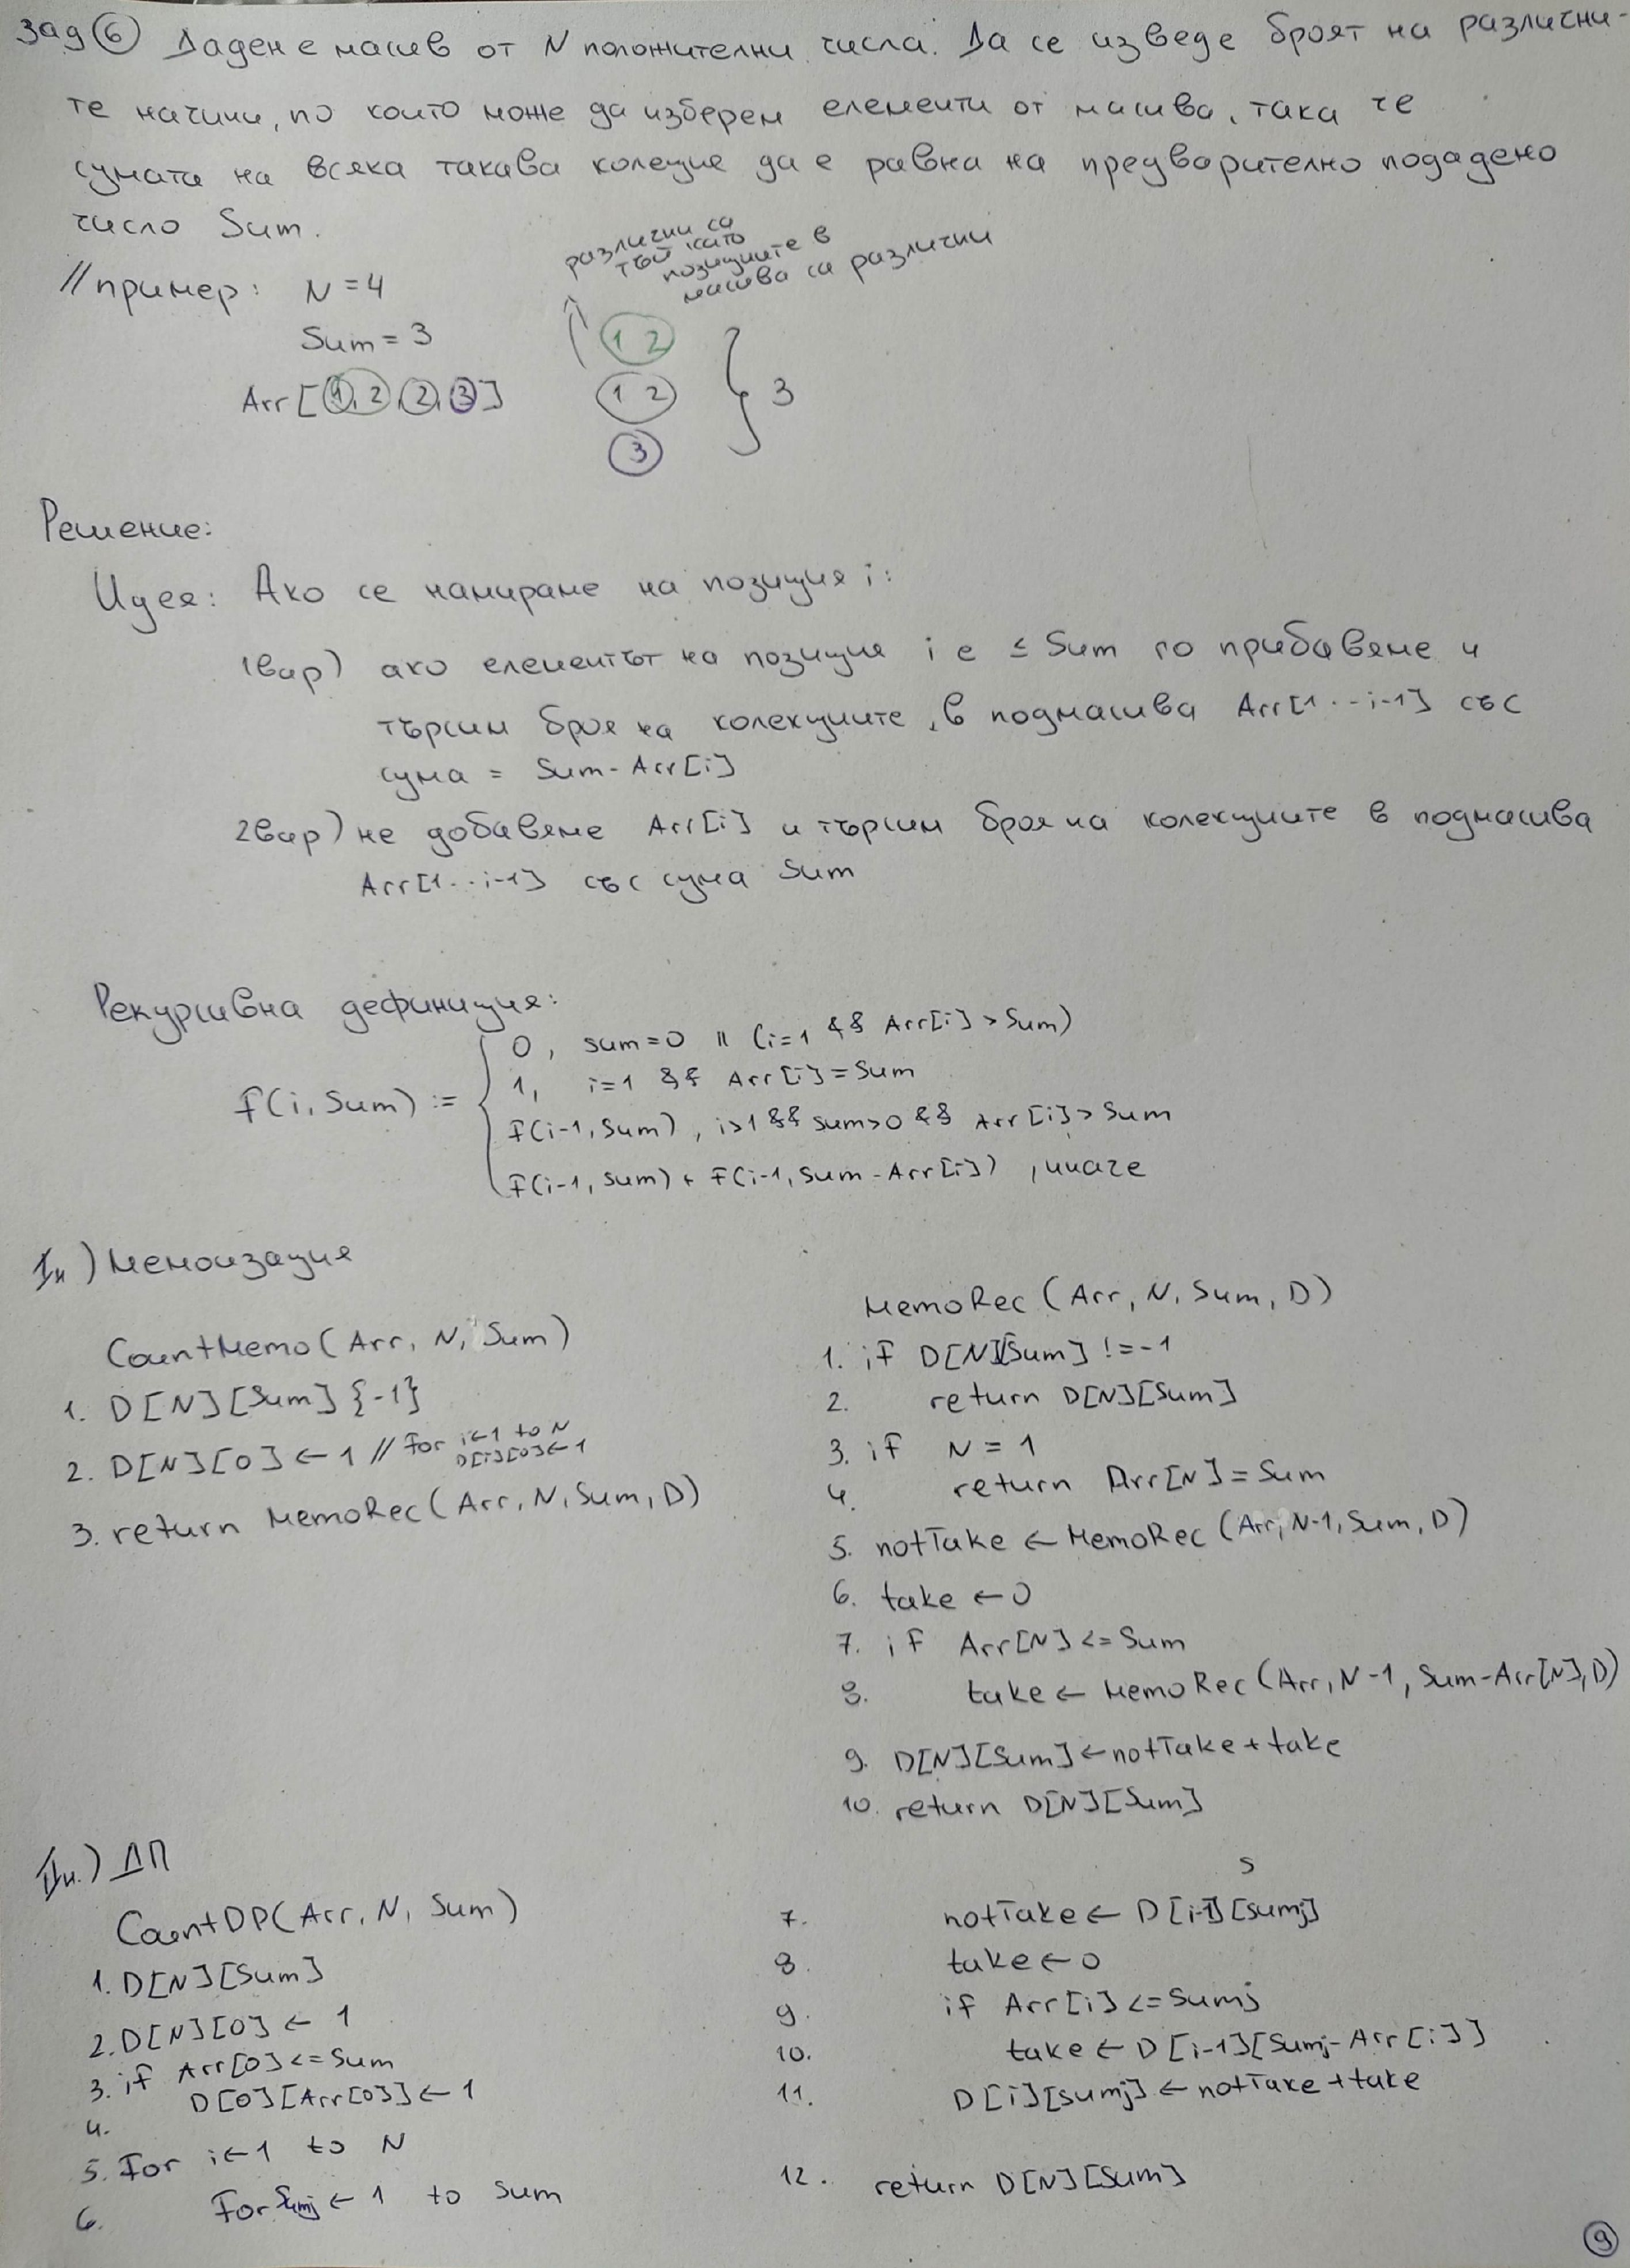 Зад 6 Даден е масив от N положителни числа. Да се изведе броят на различни-
те начини, по които може да изберем елементи от масива, така че
сумата на всяка такава колеция да е равна на предварително подадено
число Sum.
различни са
тъй като
позициите в
масива са различни
// пример: N = 4
Sum = 3
Arr[1, 2, 2, 3]
1 2
1 2
3
3
Решение:
Идея: Ако се намираме на позиция i:
1вар) ако елементът на позиция i е ≤ Sum го прибавяме и
търсим броя на колекциите, в подмасива Arr[1...i-1] със
сума = Sum - Arr[i]
2вар) не добавяме Arr[i] и търсим броя на колекциите в подмасива
Arr[1...i-1] със сума Sum
Рекурсивна дефиниция:
F(i, Sum) :=
0, sum=0 || (i=1 && Arr[i] > Sum)
1, i=1 && Arr[i] = Sum
F(i-1, Sum), i>1 && sum>0 && Arr[i] > Sum
F(i-1, Sum) + F(i-1, Sum - Arr[i]), иначе
Iн) Мемоизация
CountMemo(Arr, N, Sum)
1. D[N][Sum]{-1}
2. D[N][0] ← 1 // For i←1 to N
D[i][0]←1
3. return MemoRec(Arr, N, Sum, D)
MemoRec(Arr, N, Sum, D)
1. if D[N][Sum] != -1
2. return D[N][Sum]
3. if N = 1
4. return Arr[N] = Sum
5. notTake ← MemoRec(Arr, N-1, Sum, D)
6. take ← 0
7. if Arr[N] <= Sum
8. take ← MemoRec(Arr, N-1, Sum-Arr[N], D)
9. D[N][Sum] ← notTake + take
10. return D[N][Sum]
IIн.) ДП
CountDP(Arr, N, Sum)
1. D[N][Sum]
2. D[N][0] ← 1
3. if Arr[0] <= Sum
4. D[0][Arr[0]] ← 1
5. For i←1 to N
6. For Sumj ← 1 to Sum
s
7. notTake ← D[i-1][sumj]
8. take ← 0
9. if Arr[i] <= Sumj
10. take ← D[i-1][Sumj-Arr[i]]
11. D[i][sumj] ← notTake + take
12. return D[N][Sum]
9